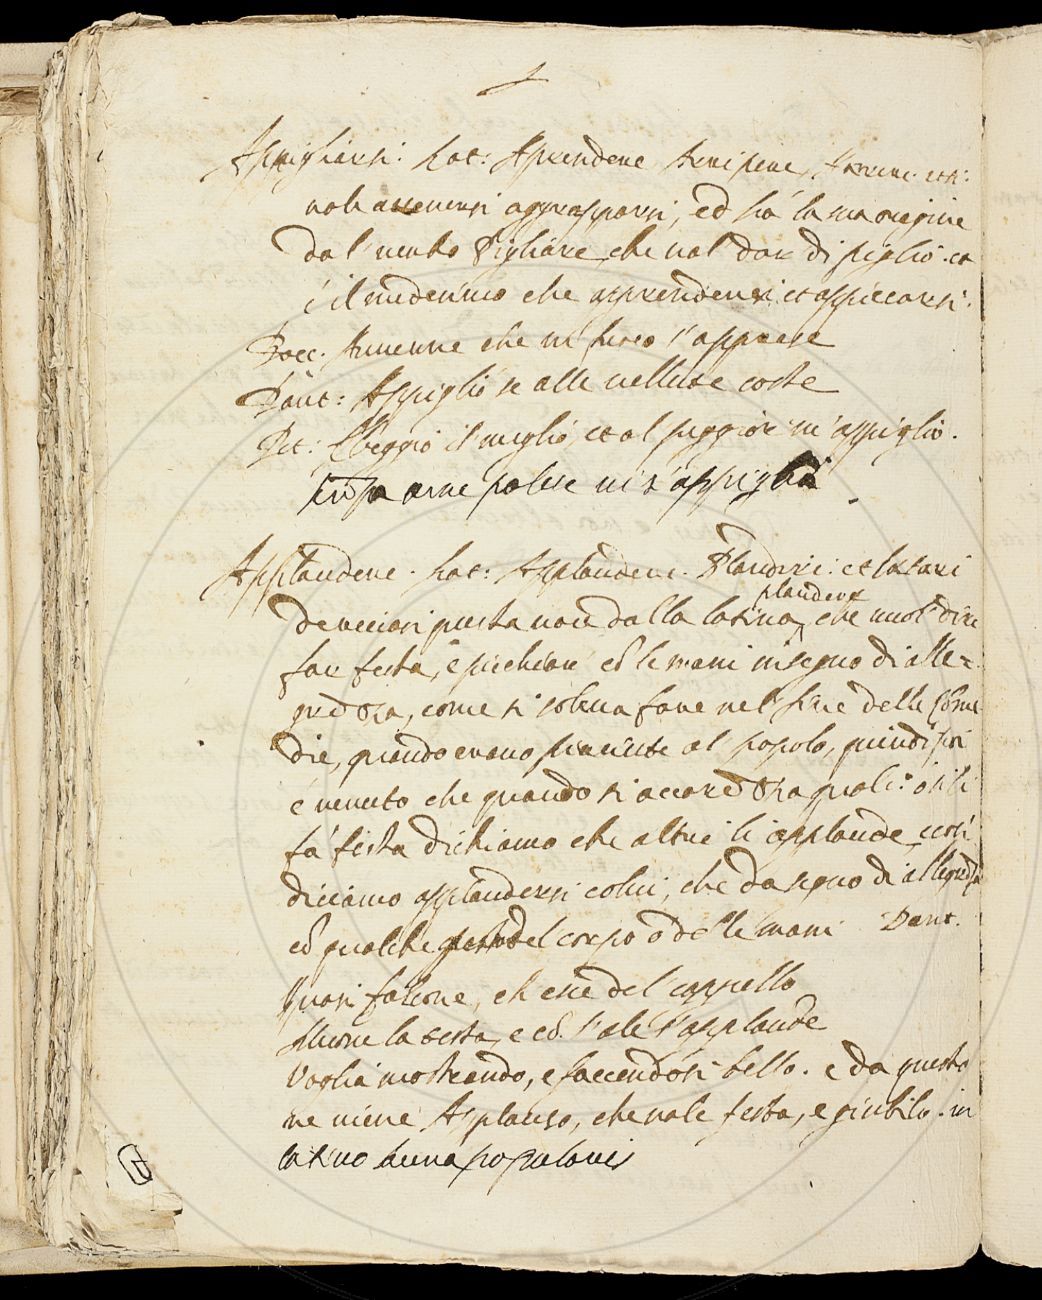 Appigliarsi. Lat: Aprendere Arripere,
vale attenersi aggrapparsi, ed há la sua origine
dal verbo Pigliare, che val dar di piglio. et
é il medesimo che apprendersi et appiccarsi.
Bocc. Avenne che vi fuoco s'apprese
Dant: Appigliò se alle vellute coste
Pet: Veggio il meglio, et al peggior m'appiglio.
arme polire vi s'appiglia
Applaudere. Lat: Applaudere. Blandiri. et
questa voce dalla latina plaudere che vuol dire
far festa, e picchiare cō le mani in segno di alle=
grezza, come si soleva fare nel fine delle Come
die, quando erano piaciute al popolo, quindi poi
é venuto che quando si accarezza qualc.º ó gli si
fá festa dichiamo che altri li applaude, cosí
diciamo applaudersi colui, che da segno di allegrezza
cō qualche gesto del corpo ó delle mani Dant.
Quasi falcone, ch esce del cappello
Muove la testa, e cō l'ale s'applaude
Voglia mostrando, e faccendosi bello. e da questo
ne viene Applauso, che vale festa, e giubilo. in
latino aura popularis